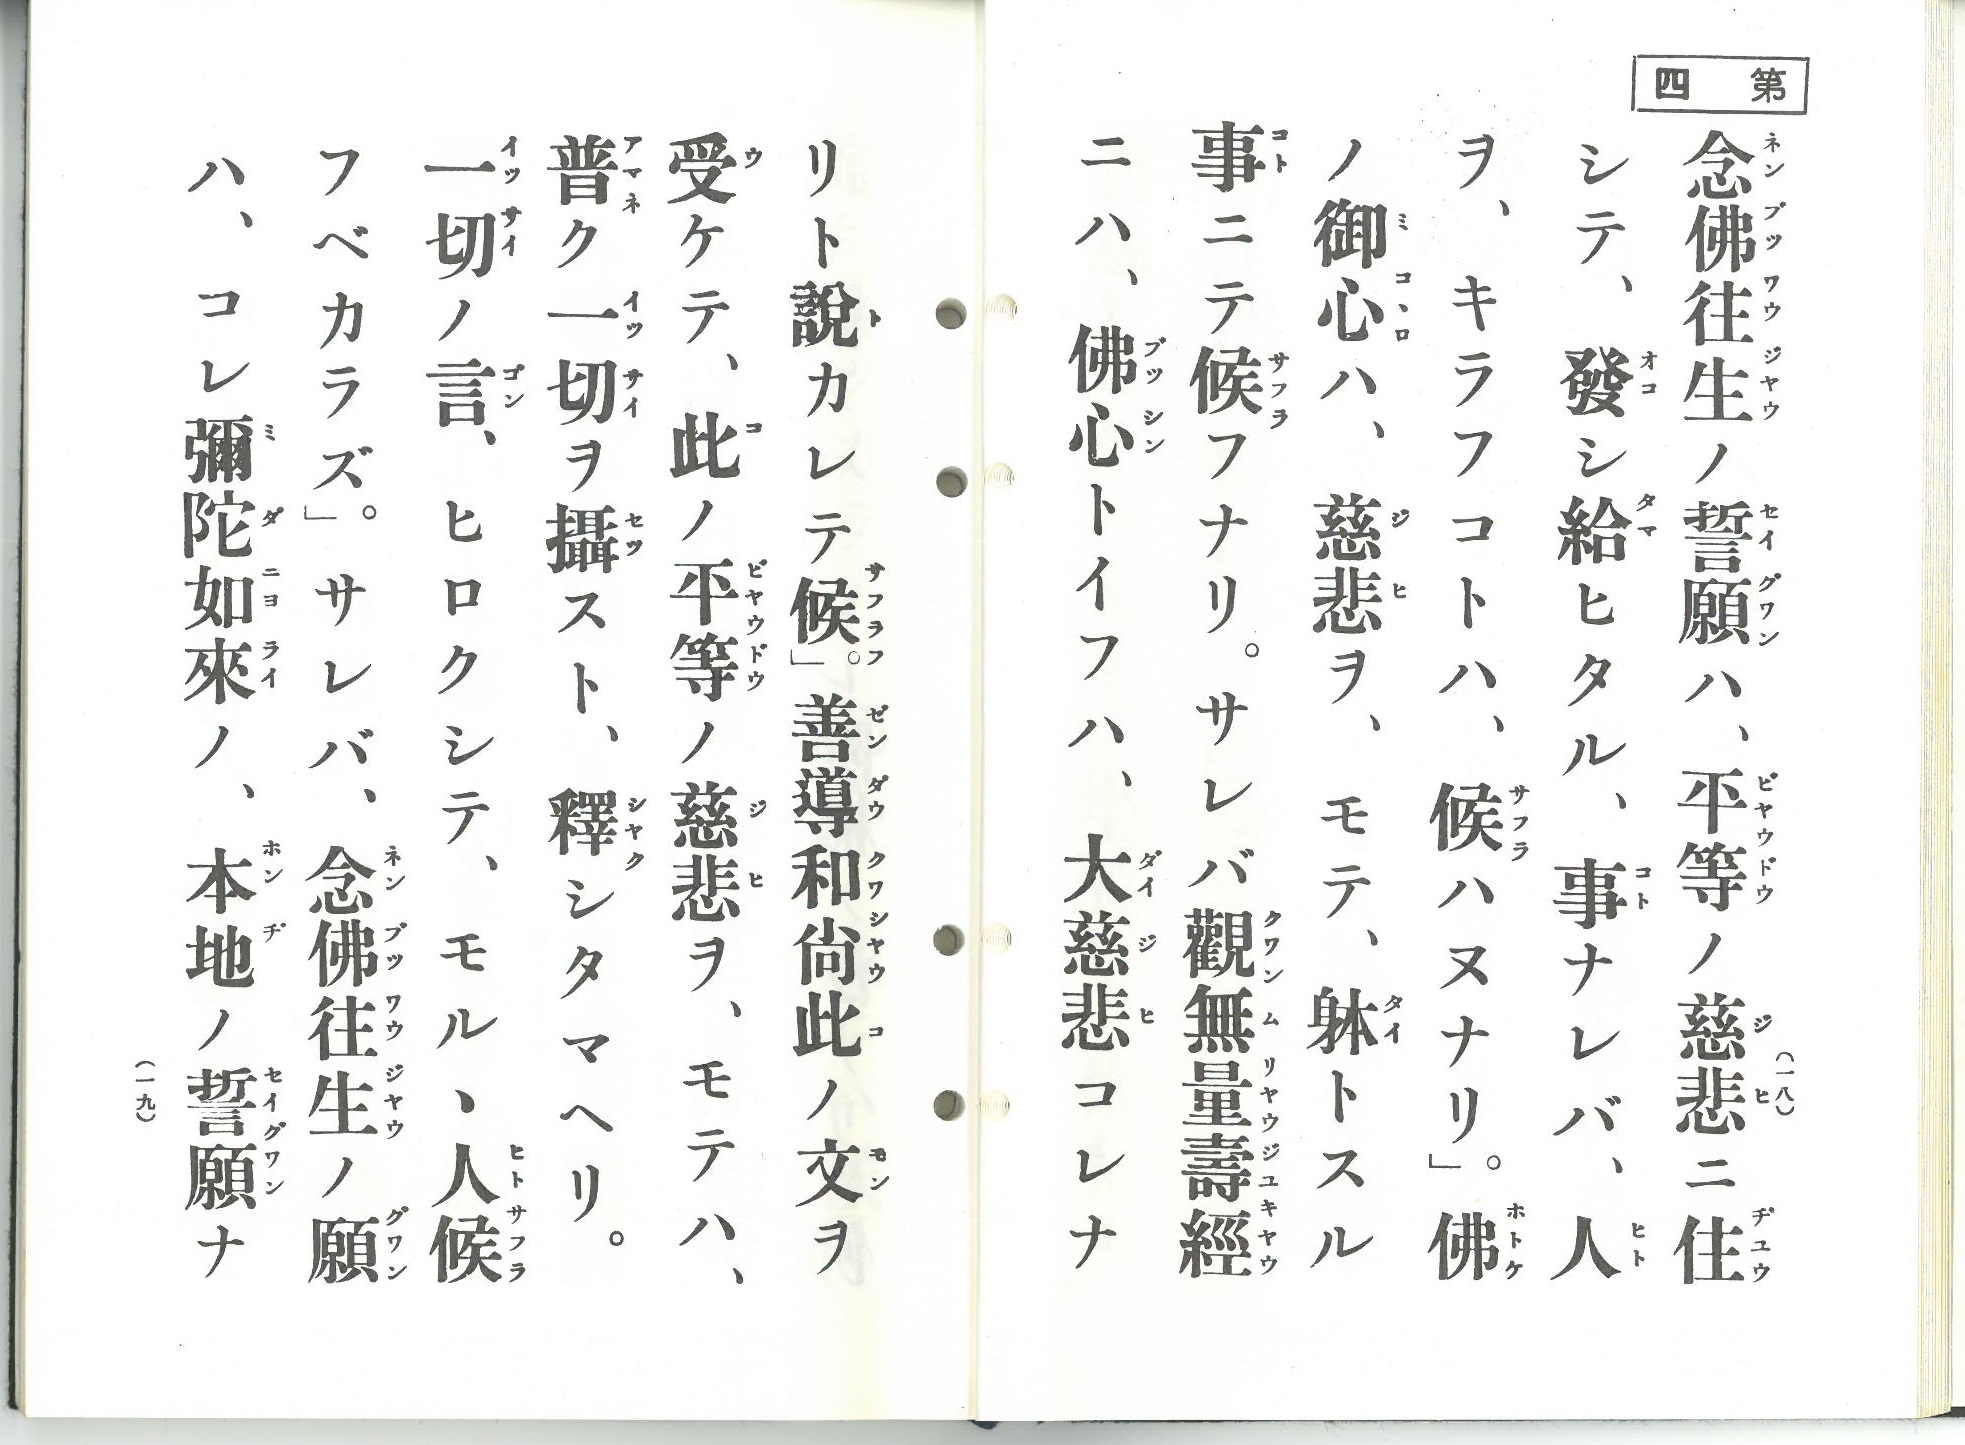 第四
念佛往生ノ誓願ハ、平等ノ慈悲ニ住
シテ、發シ給ヒタル、事ナレバ、人
ヲ、キラフコトハ、候ハヌナリ。」佛
ノ御心ハ、慈悲ヲ、モテ、躰トスル
事ニテ候フナリ。サレバ觀無量壽經
ニハ、佛心トイフハ、大慈悲コレナ
(一八)
リト說カレテ候。」善導和尙此ノ文ヲ
受ケテ、此ノ平等ノ慈悲ヲ、モテハ、
普ク一切ヲ攝スト、釋シタマヘリ。
一切ノ言、ヒロクシテ、モル、人候
フベカラズ。」サレバ、念佛往生ノ願
ハ、コレ彌陀如來ノ、本地ノ誓願ナ
(一九)